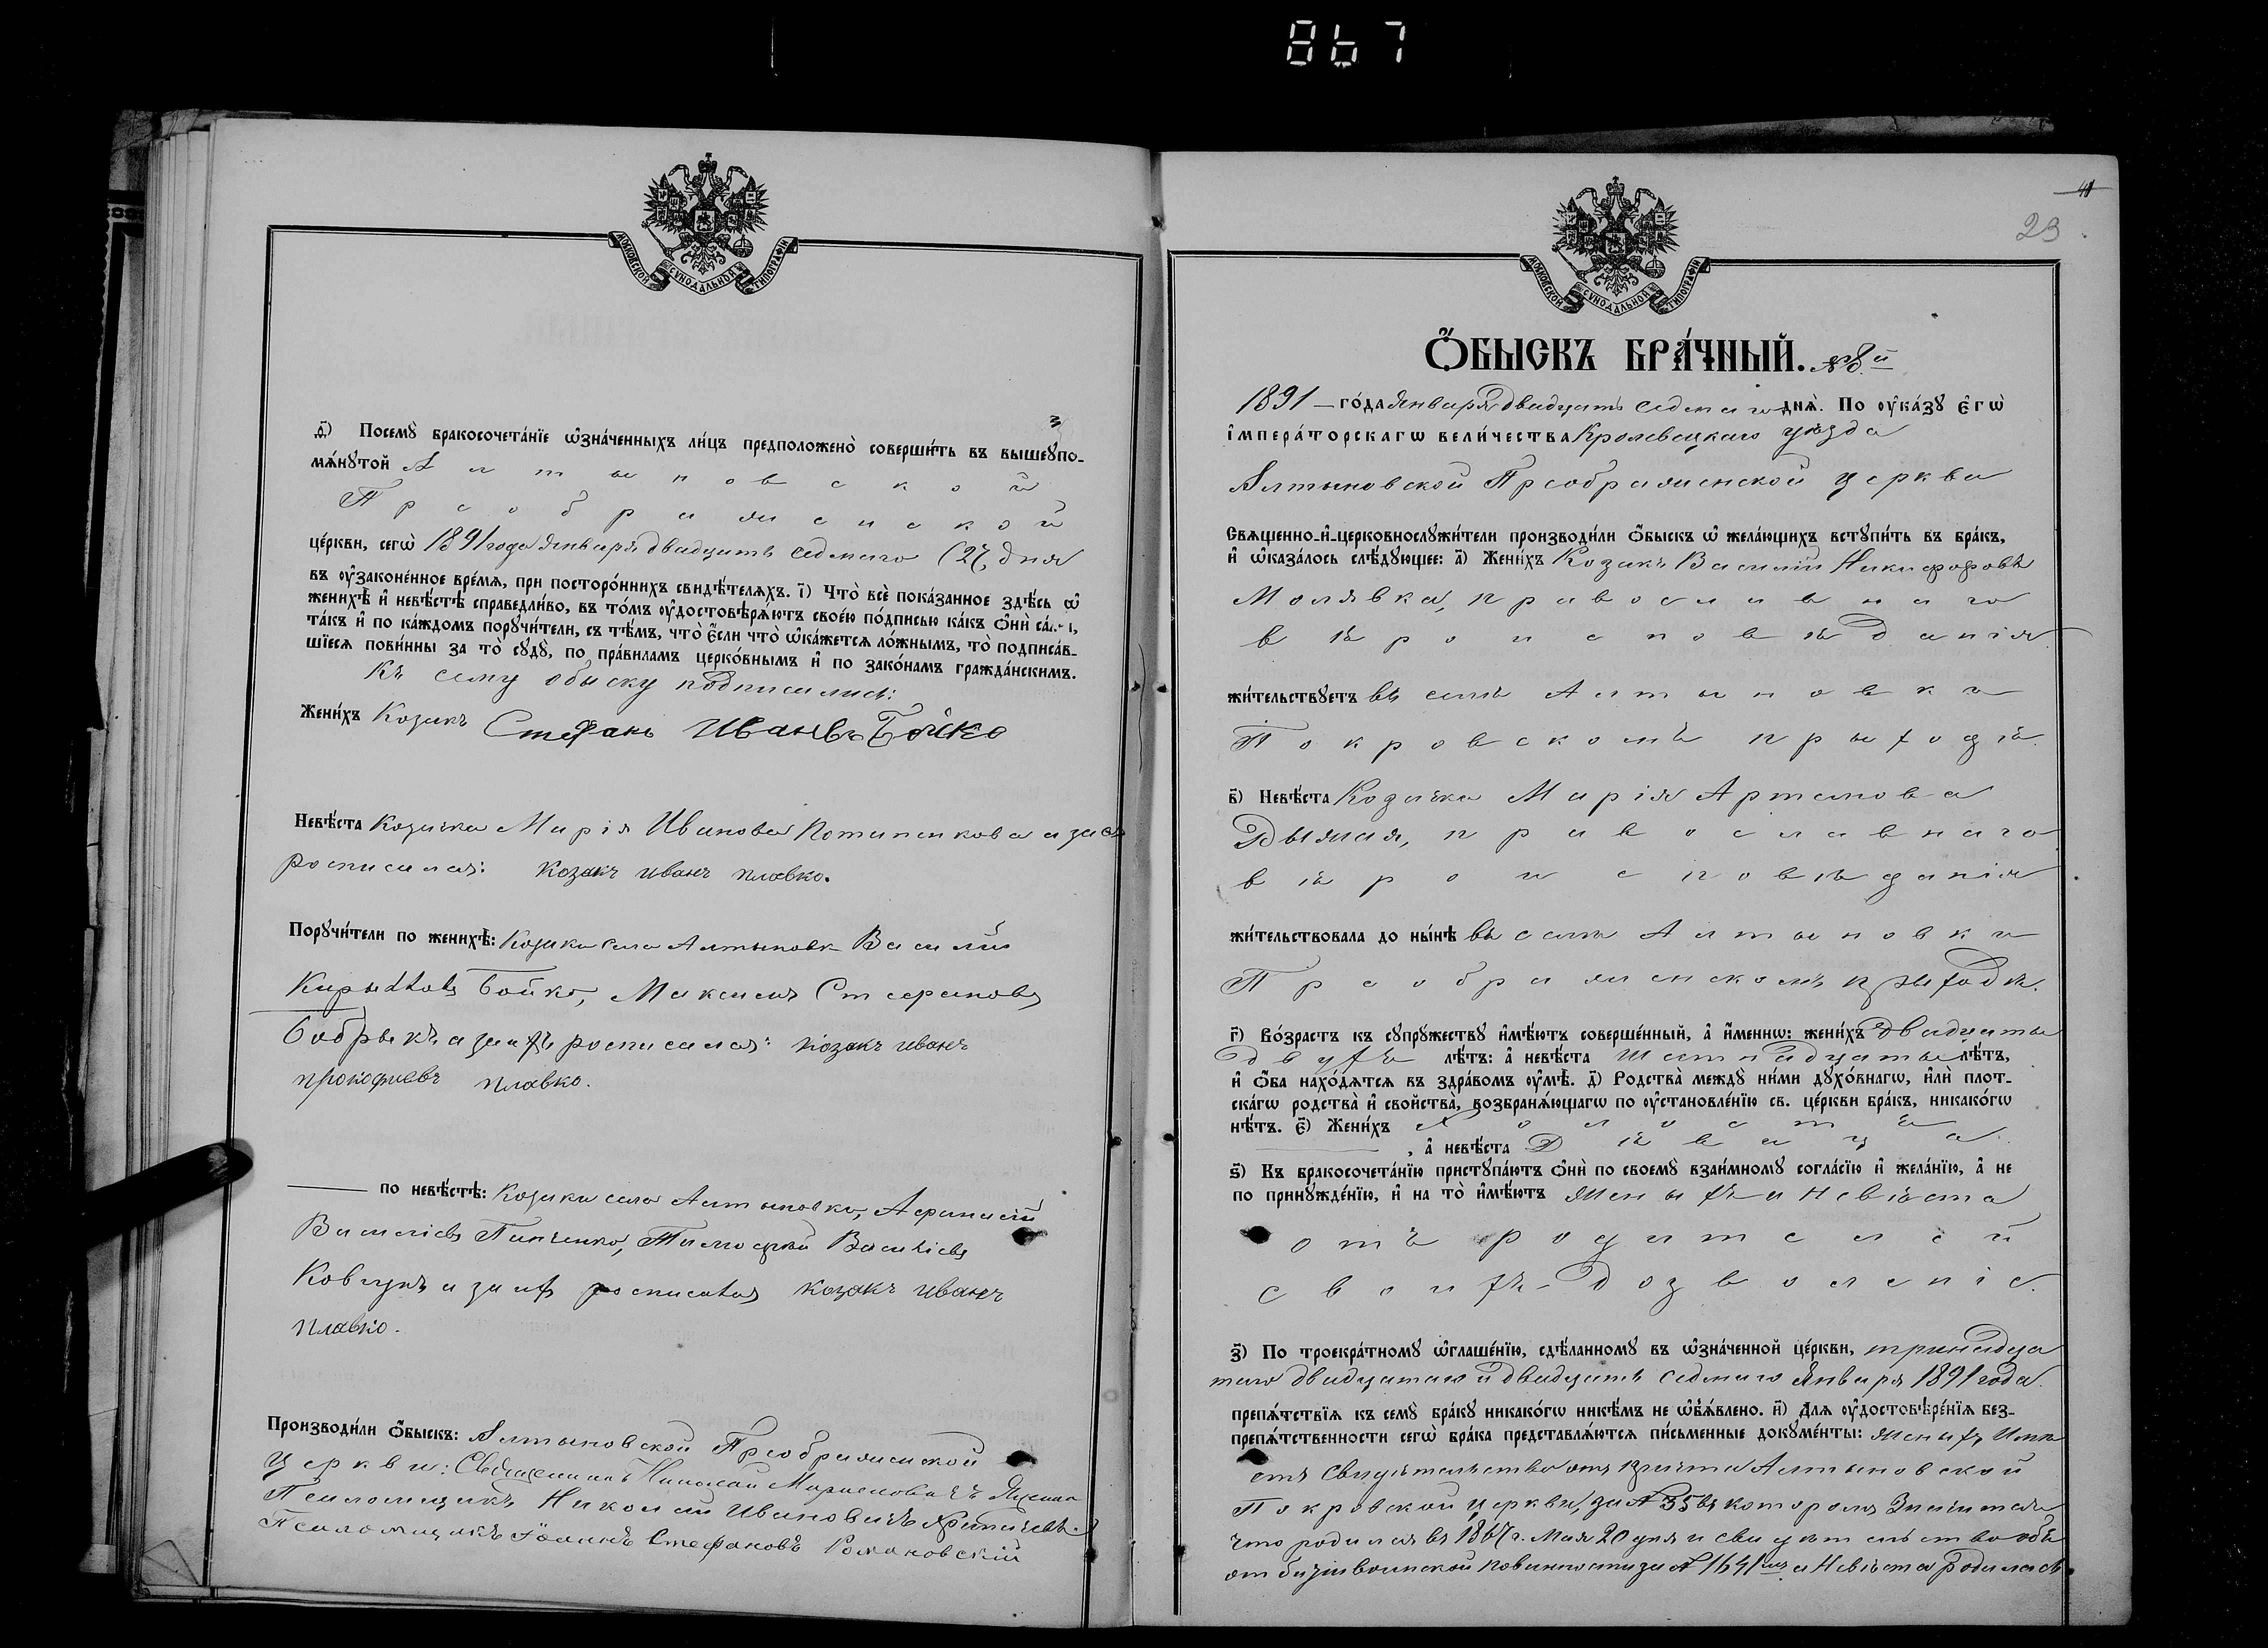 867
МОСКОВСКОЙ СѴНОДАЛЬНОЙ ТИПОГРАФІИ
д҃) Посемꙋ̀ бракосочета́нїе ѡ҆зна́ченныхъ ли́цъ предположено̀ соверши́ть въ вышеꙋпо-
мѧ́нꙋтой Алтыновской
Преображенской
це́ркви, сегѡ̀ 1891 года Января двадцать седмаго (27, дня
въ оу҆законе́нное вре́мѧ, при посторо́ннихъ свидѣ́телѧхъ. і҃) Что̀ всѐ пока́занное здѣ́сь ѡ҆
женихѣ̀ и҆ невѣ́стѣ справедли́во, въ то́мъ оу҆достовѣрѧ́ютъ свое́ю по́дписью ка́къ ѻ҆нѝ са́ми,
та́къ и҆ по ка́ждомъ порꙋчи́тели, съ тѣ́мъ, что̀ є҆́сли что̀ ѡ҆ка́жется ло́жнымъ, то̀ подписа́в-
шїеся пови́нны за то̀ сꙋдꙋ̀, по пра́виламъ церко́внымъ и҆ по зако́намъ гражда́нскимъ.
Къ сему обыску подписались:
Жени́хъ Козакъ Стефанъ Ивановъ Бойко
Невѣ́ста Козачка Марія Иванова Потапенкова а за ея
росписался: козакъ иванъ плавко.
Порꙋчи́тели по женихѣ̀: Козаки села Алтыновки Василій
Бойко, Максимъ Стефановъ
Бобрыкъ а за ихъ росписался: козакъ иванъ
прокофиевъ плавко.
по невѣ́стѣ: Козаки села Алтыновки, Афанасій
Василіевъ Панченко, Тимофей Василіевъ
Ковтунъ а за ихъ росписался козакъ иванъ
плавко.
Производи́ли ѻ҆́быскъ: Алтыновской Преображенской
Церкви: Священникъ Николай
Псаломщикъ Николай Ивановичъ
Псаломщикъ Іоаннъ Стефановъ Романовскій
41
23.
МОСКОВСКОЙ СѴНОДАЛЬНОЙ ТИПОГРАФІИ
Ѻ҆́БЫСКЪ БРА́ЧНЫЙ. № 8й
1891 – го́да Января двадцать седмаго днѧ̀. По оу҆ка́зꙋ є҆гѡ̀
і҆мпера́торскагѡ вели́чества Кролевецкаго уѣзда
Алтыновской Преображенской церкви
Свѧщенно-и҆-церковнослꙋжи́тели производи́ли ѻ҆́быскъ ѡ҆ жела́ющихъ встꙋпи́ть въ бра́къ,
и҆ ѡ҆каза́лось слѣ́дꙋющее: а҃) Жени́хъ Козакъ Василій Никифоровъ
Молявка, православнаго
вѣроисповѣданія
жи́тельствꙋетъ въ селѣ Алтыновки
Покровскомъ прыходѣ.
в҃) Невѣ́ста Козачка Марія Артемова
Дымая, православнаго
вѣроисповѣданія
жи́тельствовала до ны́нѣ въ селѣ Алтыновки
Преображенскомъ прыходѣ.
г҃) Во́зрастъ къ сꙋпрꙋ́жествꙋ и҆мѣ́ютъ соверше́нный, а҆ и҆́меннѡ: жени́хъ Двадцаты
двухъ лѣ́тъ: а҆ невѣ́ста шестнадцаты лѣ́тъ,
и҆ ѻ҆́ба нахо́дятся въ здра́вомъ оу҆мѣ̀. д҃) Родства̀ междꙋ̀ ни́ми дꙋхо́внагѡ, и҆лѝ плот-
ска́гѡ родства̀ и҆ свойства̀, возбранѧ́ющагѡ по оу҆становле́нїю св. це́ркви бра́къ, никако́гѡ
нѣ́тъ. є҃) Жени́хъ Холостъ
, а҆ невѣ́ста Дѣвица
ѕ҃) Къ бракосочета́нїю пристꙋпа́ютъ ѻ҆нѝ по своемꙋ̀ взаи́мномꙋ согла́сїю и҆ жела́нїю, а҆ не
по принꙋжде́нїю, и҆ на то̀ и҆мѣ́ютъ женыхъ и невѣста
отъ родителей
своихъ – дозволеніе.
з҃) По троекра́тномꙋ ѡ҆глаше́нїю, сдѣ́ланномꙋ въ ѡ҆зна́ченной це́ркви, тринадца
таго двадцатаго и двадцать седмаго Января 1891 года.
препѧ́тствїѧ къ семꙋ̀ бра́кꙋ никако́гѡ никѣ́мъ не ѡ҆б̾ѧ́влено. и҃) Длѧ оу҆достовѣре́нїѧ без-
препѧ́тственности сегѡ̀ бра́ка представлѧ́ются пи́сьменные докꙋме́нты: женихъ Имѣ
етъ свидѣтельство отъ причта Алтыновской
Покровской церкви, за № 35 въ которомъ значится
что родился въ 1867 г. Мая 20 дня и свидѣтельство объ
отбытіи воинской повинности за № 1641мъ а Невѣста родилась